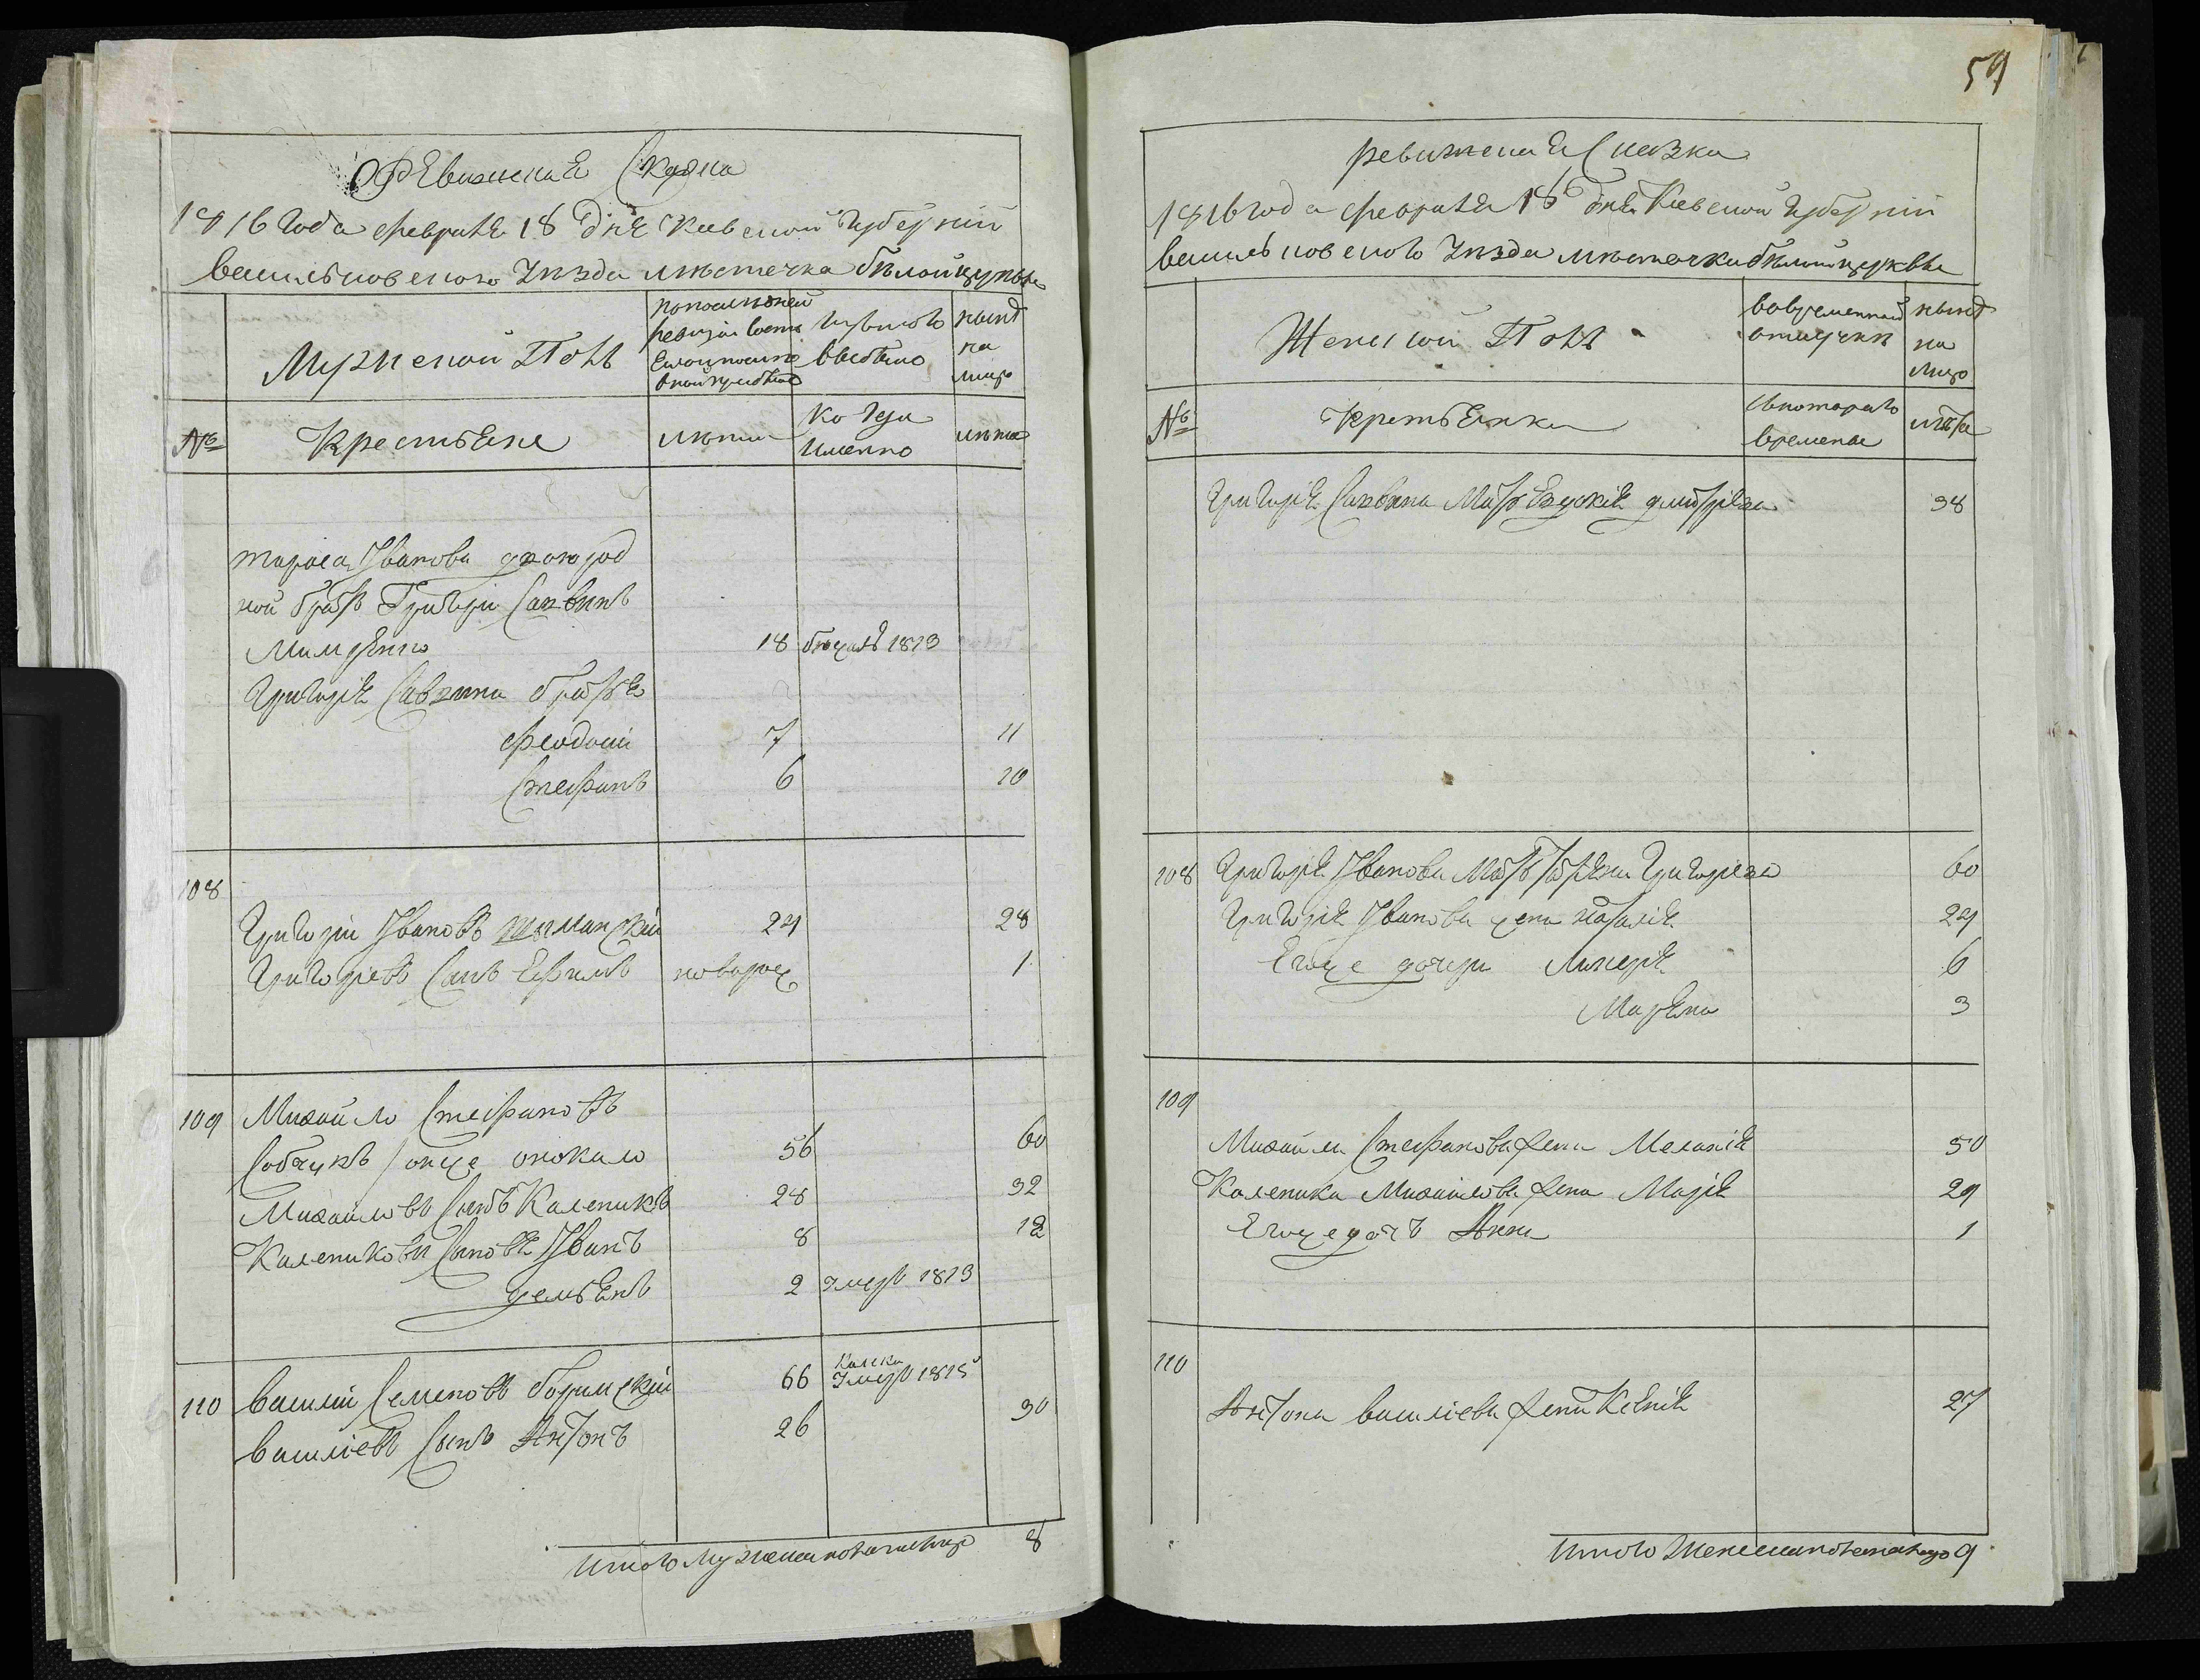 Ревизская Сказка
1816 года февраля 18 дня Киевской Губернии
васильковского уезда местечка белой церкви
Мужеской Полъ
по последней ревизии состояло и после оной прибыло
из того выбыло
ныне на лицо
№
Крестьяне
лета
Когда именно
лета
тараса Иванова двоюрод
ной братъ Григори Саввинъ
18 бежалъ 1813
Григорія Саввина братья
феодосій 7 11
Стефанъ 6 10
108
Григорій Ивановъ 24 28
Григоревъ Сынъ Ефимъ новорож 1
109 Михайло Стефановъ
56 60
Михайловъ Сынъ Каленикъ 28 32
Каленикови Сыновя Иванъ 8 12
демьянъ 2 Умеръ 1813
110 василій Семеновъ 66 Умеръ 1815
василіевъ Сынъ Антонъ 26 30
Итого мужеска пола на лицо 8
59
ревизская Сказка
1816 года февраля 18 дня Киевской Губерніи
васильковского уезда местечка белой церквы
Женской Полъ
во временной отлучки
ныне на лицо
№
Крестьянки
Скоторого времены
лета
Григорія Саввина Мать Евдокія дмитріева 38
108 Григорія Иванова Мать Григорева 60
Григорія Иванова жена наталія 24
Егоже дочери Ликерія 6
Марѣна 3
109
Михайла Стефанова жена Меланія 50
Каленика Михайлова жена Марія 29
Егоже дочъ Анна 1
110
Антона василіева жена Ксенія 27
Итого Женска пола на лицо 9